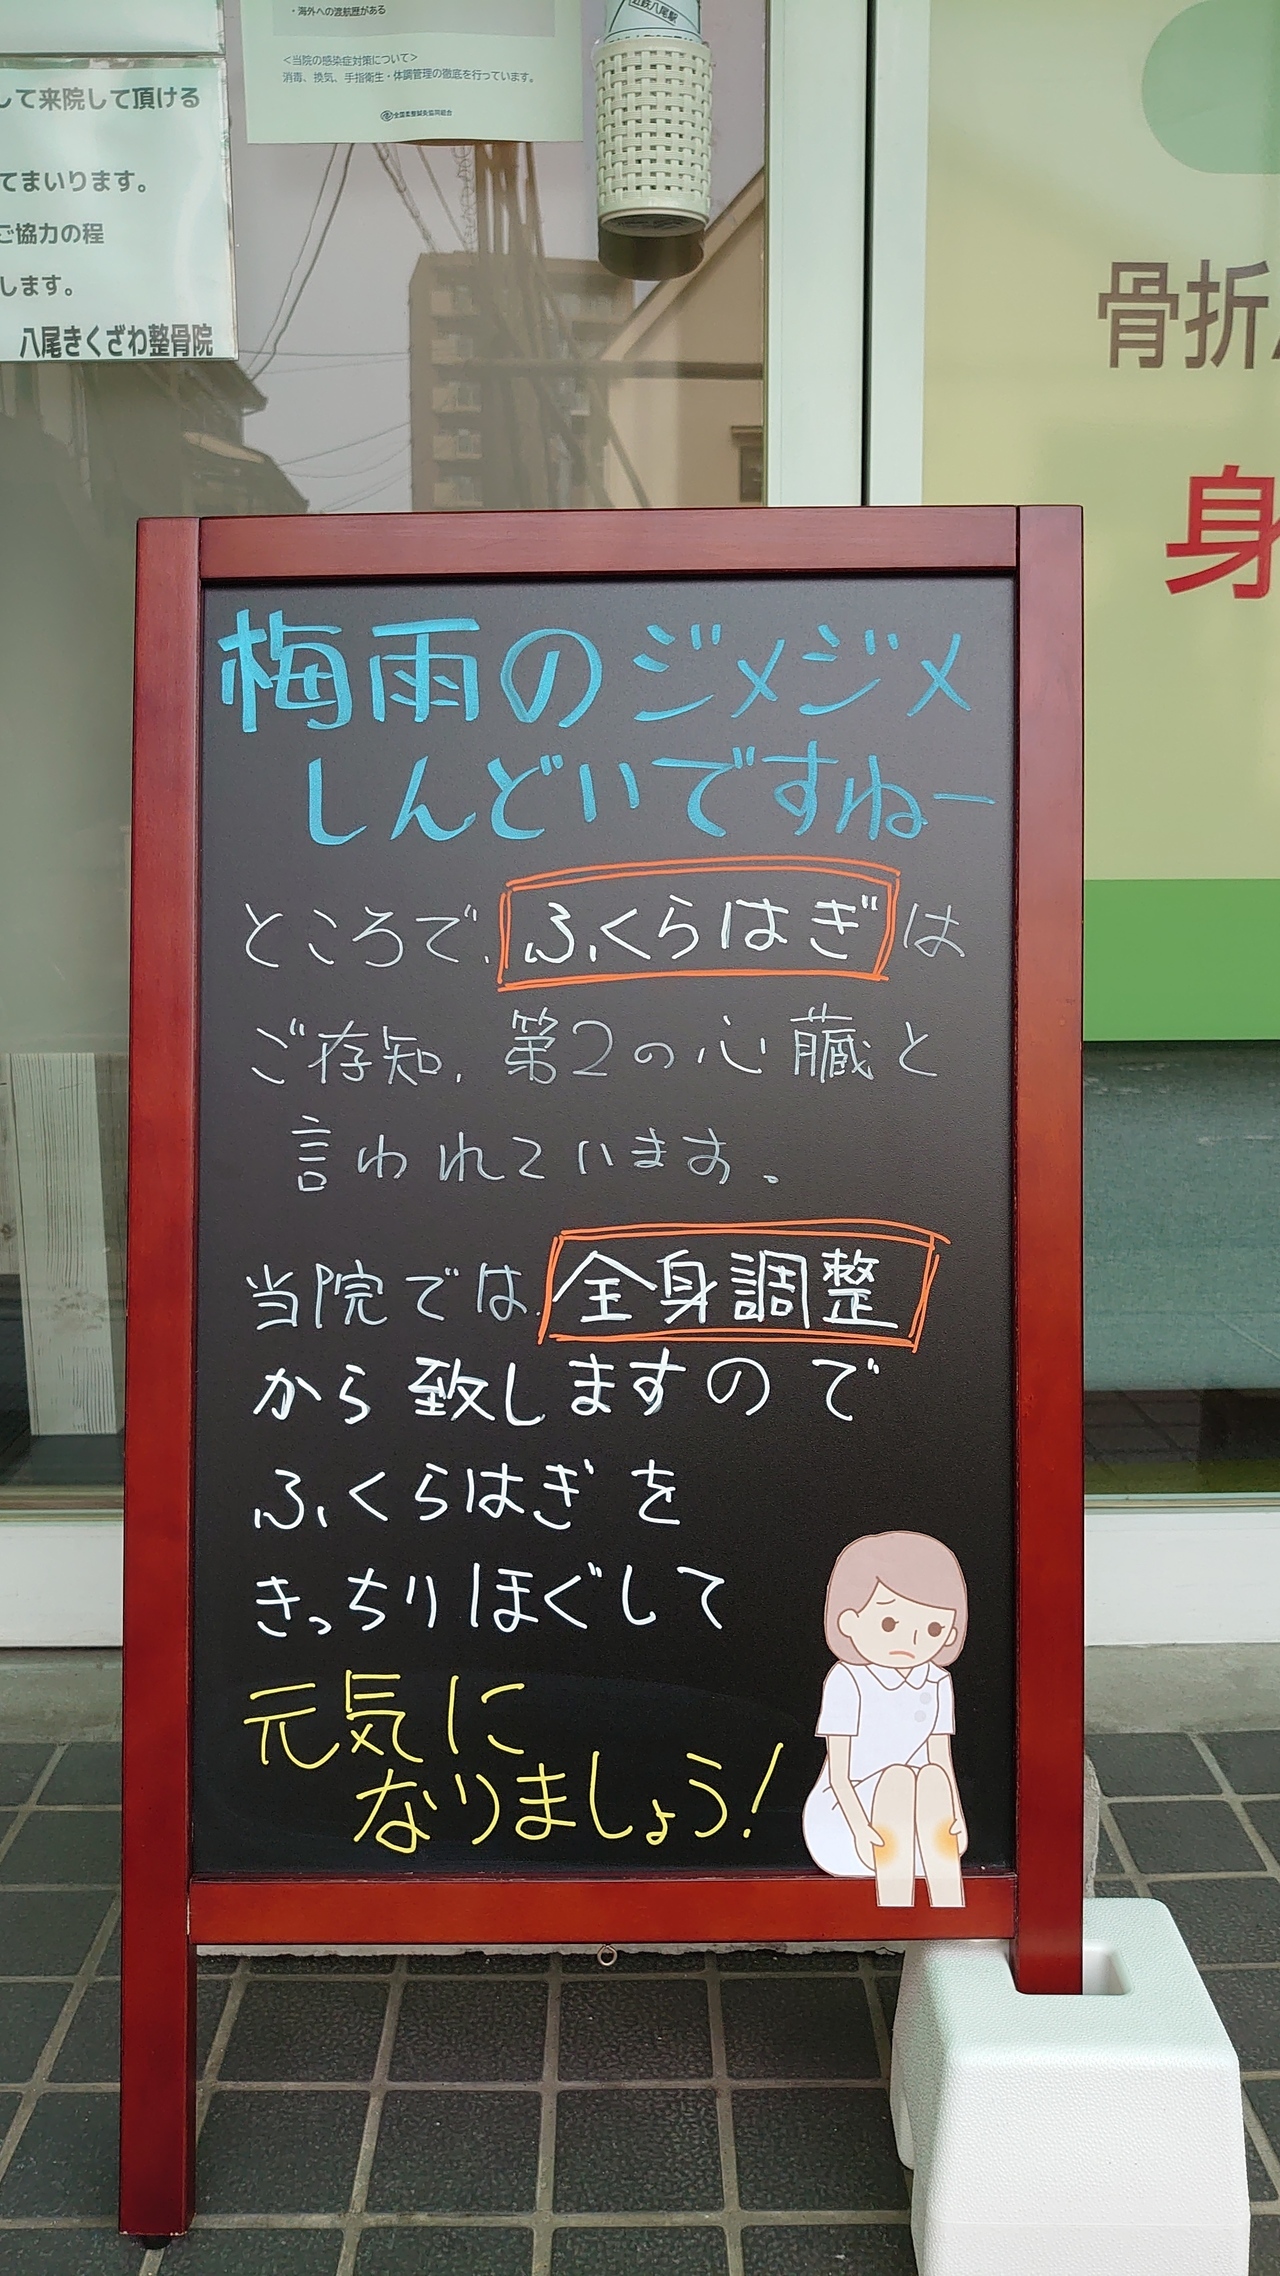 ・海外への渡航歴がある
<当院の感染症対策について>
消毒、換気、手指衛生・体調管理の徹底を行っています。
全国柔整鍼灸協同組合
近鉄八尾駅
して来院して頂ける
てまいります。
ご協力の程
します。
八尾きくざわ整骨院
骨折
身
梅雨のジメジメ
しんどいですねー
ところで、ふくらはぎは
ご存知、第2の心臓と
言われています。
当院では、全身調整
から致しますので
ふくらはぎを
きっちりほぐして
元気に
なりましょう!